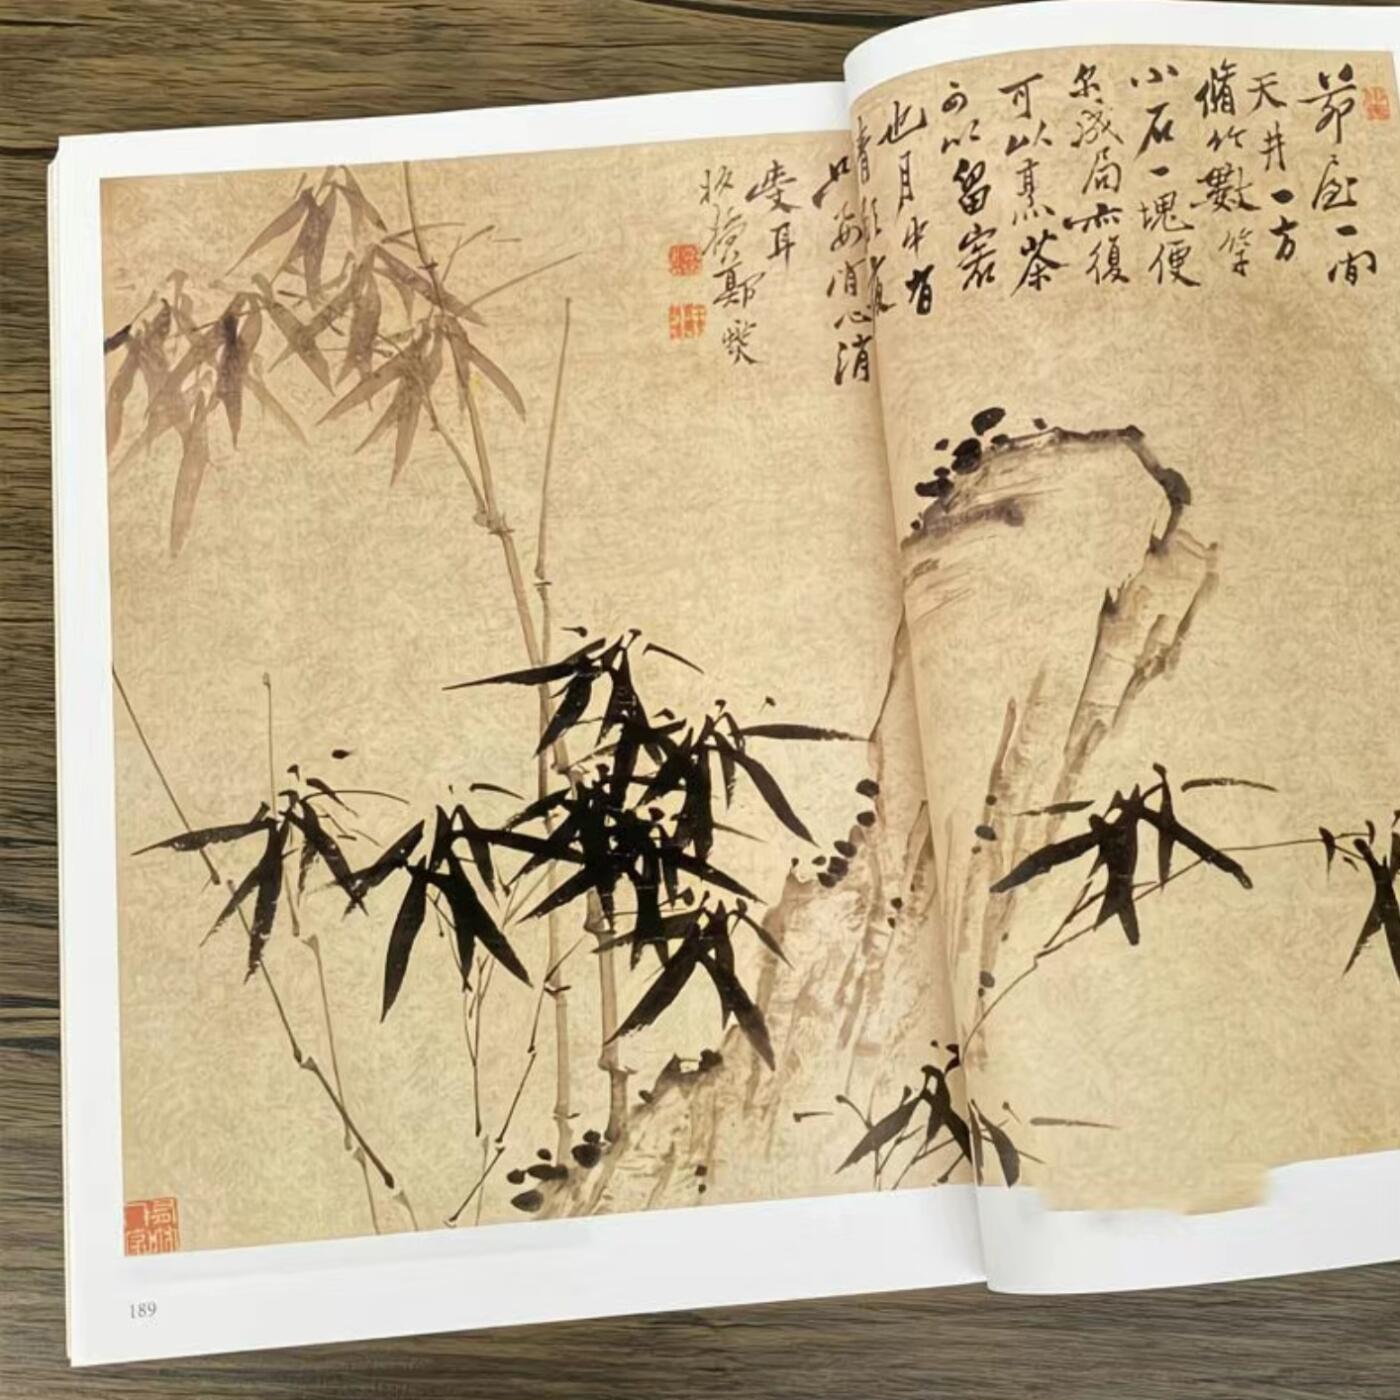 茆屋一間
天井一方
脩竹數竿
小石一塊便
尔成局亦復
可以烹茶
可以留客
也月中有
只要閒心消
受耳
板橋鄭燮
189